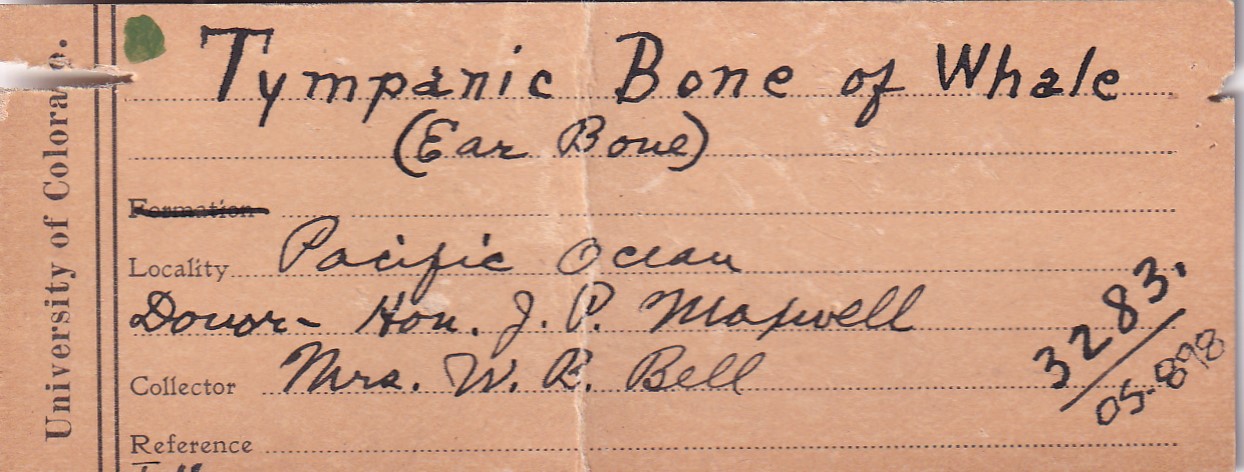 University of Colorado.
Tympanic Bone of Whale
(Ear Bone)
Formation
Locality Pacific Ocean
Donor - Hon. J. P. Maxwell
Collector Mrs. W. B. Bell
3283.
05-898
Reference